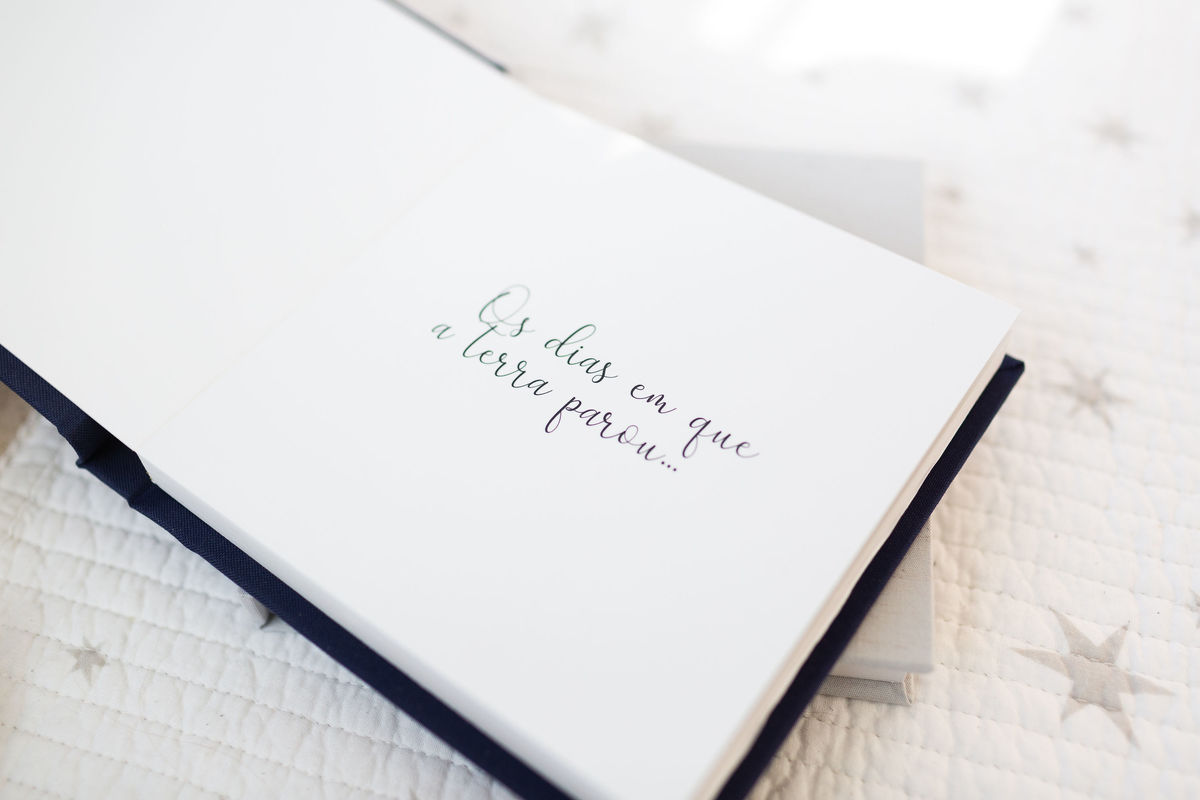 Os dias em que
a terra parou...